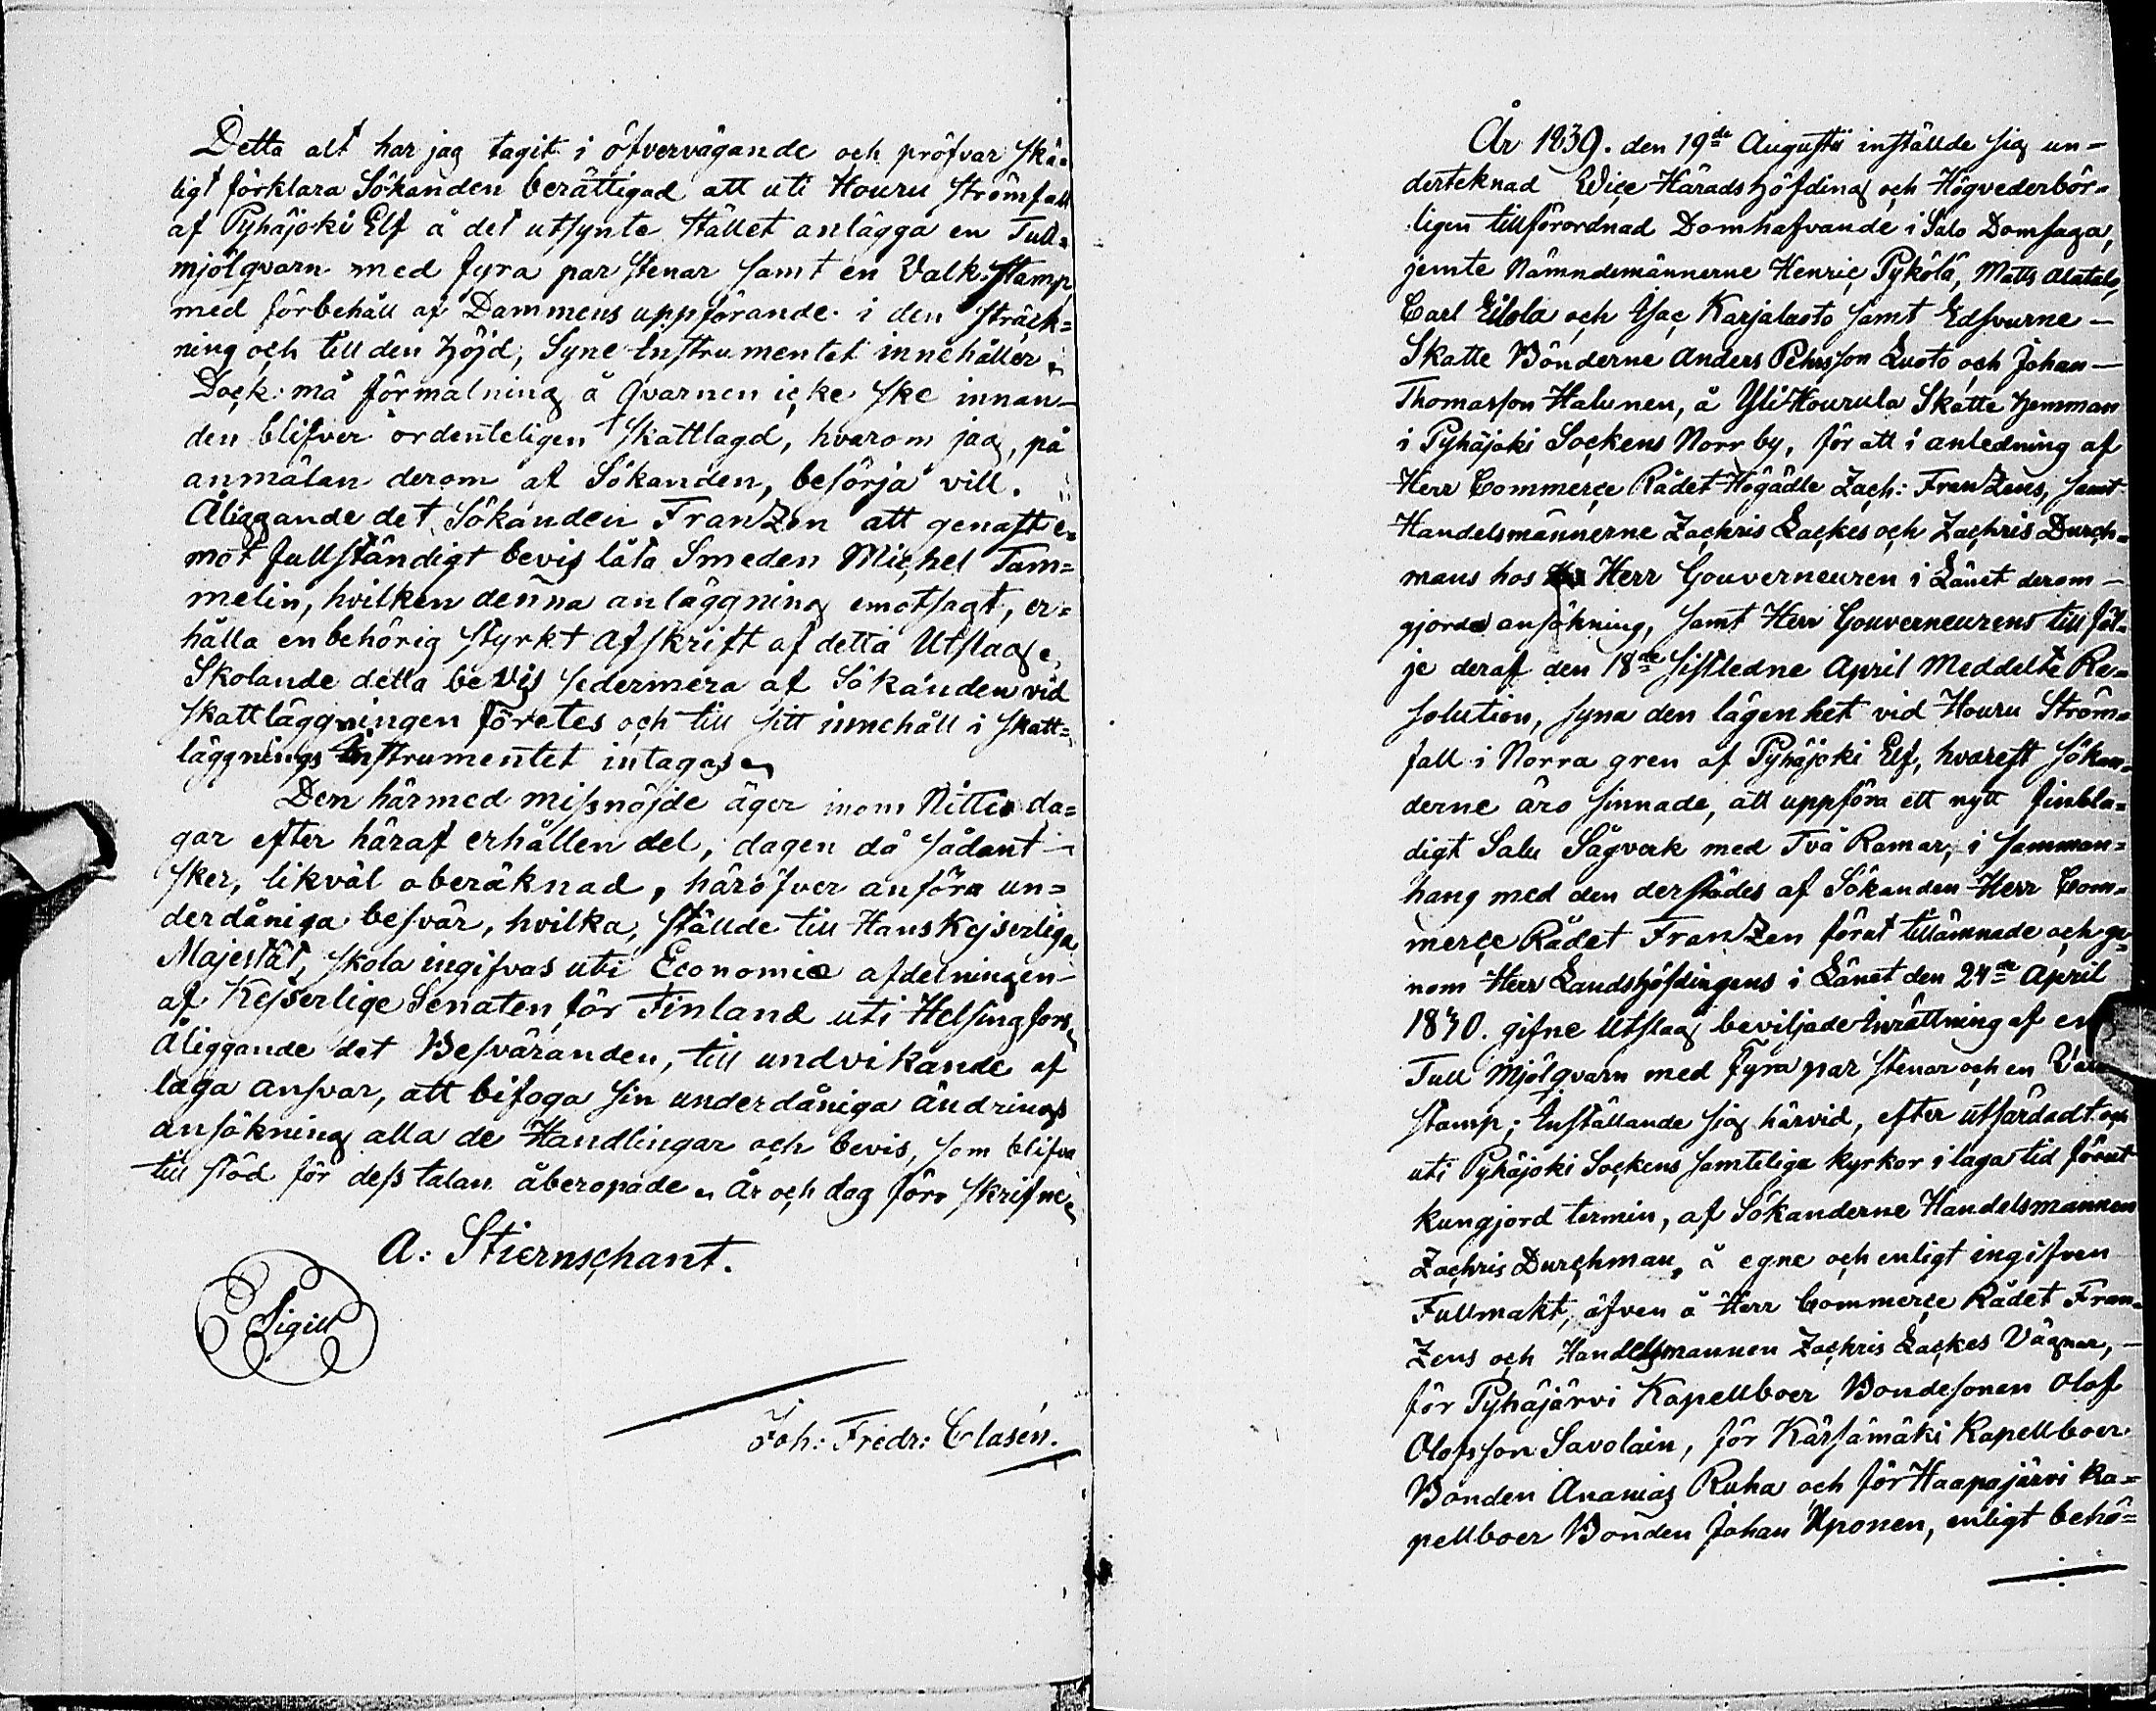 Detta alt har jag tagit i öfvervägande och pröfvar skä=
ligt förklara Sökanden berättigad att uti Houru Strömfall
af Pyhäjoki Elf å det utsynte stället anlägga en Tull=
mjölqvarn med fyra par Stenar samt en Valk Stamp,
med förbehåll af Dammens uppförande i den sträck=
ning och till den höjd, Syne Instrumentet innehåller.
Dock må förmalning å Qvarnen icke ske innan
den blifver ordenteligen Skattlagd, hvarom jag, på
anmälan derom af Sökanden, besörja vill.
Åliggande det Sökanden FranZén att genast e=
mot fullständigt bevis låta Smeden Michel Tam=
melin, hvilken denna anläggning emotsagt, er=
hålla en behörig styrkt Afskrift af detta Utslag,
Skolande detta bevis sedermera af Sökanden vid
skattläggningen företes och till sitt innehåll i skatt=
läggnings Instrumentet intagas.
Den härmed missnöjde äger inom Nittio da=
gar efter häraf erhållen del, dagen då sådant —
sker, likväl oberäknad, häröfver anföra un=
derdåniga besvär, hvilka, ställde till Hans Kejserliga
Majestät, skola ingifvas uti Economie afdelningen
af Kejserlige Senaten för Finland uti Helsingfors,
Åliggande det Besväranden, till undvikande af
laga ansvar, att bifoga sin underdåniga ändrings
ansökning alla de Handlingar och bevis, som blifva
till stöd för dess talan åberopade. År och dag förr skrifne.
A: Stiernschant.
Sigill
Joh: Fredr: Clasén.
År 1839. den 19de Augusti inställde sig un—
derteknad Wice Häradshöfding och Högvederbör=
ligen tillförordnad Domhafvande i Salo Domsaga,
jemte Nämndemännerne Henric Pykölä, Matts Alatalo,
Carl Eilola och Isac Karjaluoto samt Edsvurne —
Skatte Bönderne Anders Pehrsson Luoto och Johan —
Thomasson Halunen, å Yli Hourula Skatte hemman
i Pyhäjoki Sockens Norr by, för att i anledning af
Herr Commerce Rådet Högädle Zach: FranZens, samt
Handelsmännerne Zachris Lackes och Zachris Durch=
mans hos Herr Gouverneuren i Länet derom —
gjorde ansökning, samt Herr Gouverneurens till föl=
je deraf den 18de sistledne April Meddelte Re=
solution, syna den lägenhet vid Houru Ström=
fall i Norra gren af Pyhäjoki Elf, hvarest sökan=
derne äro sinnade, att uppföra ett nytt finbla=
digt Salu Sågverk med Två Ramar, i samman=
hang med den derstädes af Sökanden Herr Com=
merce Rådet FranZen förut tillämnade och ge=
nom Herr Landshöfdingens i Länet den 24de April
1830. gifne Utslag beviljade Inrättning af en
Tull Mjölqvarn med Fyra par Stenar och en
stamp; Inställande sig härvid, efter utfärdadt och
uti Pyhäjoki Sockens samtelige kyrkor i laga tid förut
kungjord termin, af Sökanderne Handelsmannen
Zachris Durchman, å egne och enligt ingifven
Fullmakt, äfven å Herr Commerce Rådet Fran=
Zens och Handelsmannen Zachris Lackes Vägnar, —
för Pyhäjärvi Kapellboer Bondesonen Olof
Olofsson Savolain, för Kärsämäki Kapellboer
Bonden Ananias Ruha och för Haapajärvi Ka=
pellboer Bonden Johan Uponen, enligt behö=